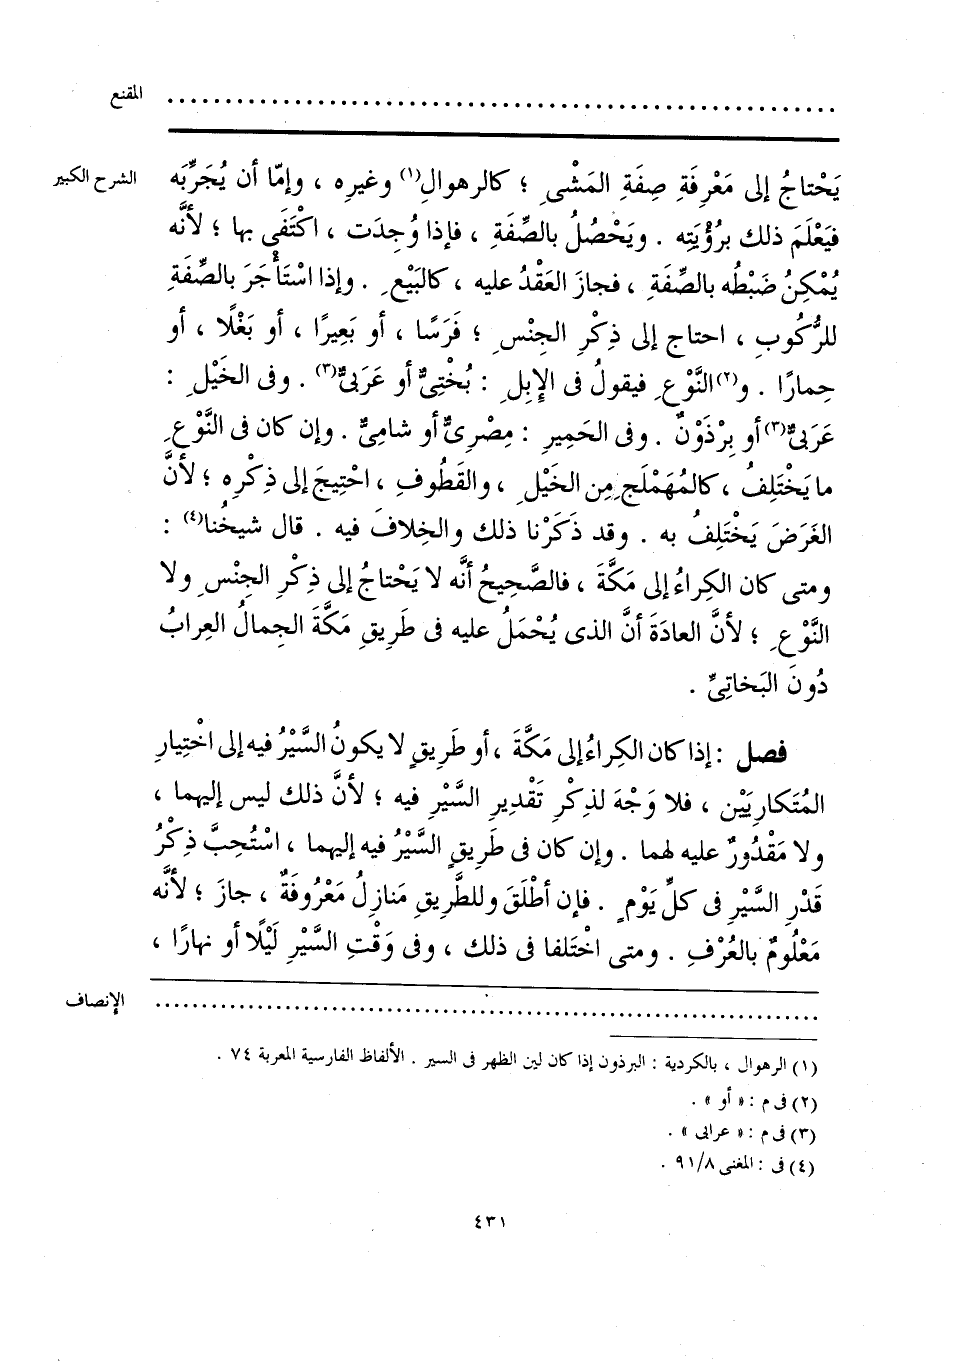 المقنع ........................................................................
الشرح الكبير
يَحْتاجُ إلى مَعْرِفَةِ صِفَةِ المَشْىِ ؛ كالرهوالِ(١) وغيرِه ، وإمّا أن يُجَرِّبَه
فيَعْلَمَ ذلك برُؤْيَتِه . ويَحْصُلُ بالصِّفَةِ ، فإذا وُجِدَت ، اكْتَفَى بها ؛ لأنَّه
يُمْكِنُ ضَبْطُه بالصِّفَةِ ، فجازَ العَقْدُ عليه ، كالبَيْعِ . وإذا اسْتَأْجَرَ بالصِّفَةِ
للرُّكُوبِ ، احتاج إلى ذِكْرِ الجِنْسِ ؛ فَرَسًا ، أو بَعِيرًا ، أو بَغْلًا ، أو
حِمارًا . و(٢)النَّوْعِ فيقولُ فى الإِبِلِ : بُخْتِىٌّ أو عَرَبِىٌّ(٣) . وفى الخَيْلِ :
عَرَبِىٌّ(٣) أو بِرْذَوْنٌ . وفى الحَمِيرِ : مِصْرِىٌّ أو شامِىٌّ . وإن كان فى النَّوْعِ
ما يَخْتَلِفُ ، كالمُهَمْلَجِ مِن الخَيْلِ ، والقَطُوفِ ، احْتِيجَ إلى ذِكْرِه ؛ لأنَّ
الغَرَضَ يَخْتَلِفُ به . وقد ذَكَرْنا ذلك والخِلافَ فيه . قال شيخُنا(٤) :
ومتى كان الكِراءُ إلى مَكَّةَ ، فالصَّحِيحُ أنَّه لا يَحْتاجُ إلى ذِكْرِ الجِنْسِ ولا
النَّوْعِ ؛ لأنَّ العادَةَ أنَّ الذى يُحْمَلُ عليه فى طَرِيقِ مَكَّةَ الجِمالُ العِرابُ
دُونَ البَخاتِىِّ .
فصل : إذا كان الكِراءُ إلى مَكَّةَ ، أو طَرِيقٍ لا يكونُ السَّيْرُ فيه إلى اخْتِيارِ
المُتَكارِيَيْن ، فلا وَجْهَ لذِكْرِ تَقْدِيرِ السَّيْرِ فيه ؛ لأنَّ ذلك ليس إليهما ،
ولا مَقْدُورٌ عليه لهما . وإن كان فى طَرِيقٍ السَّيْرُ فيه إليهما ، اسْتُحِبَّ ذِكْرُ
قَدْرِ السَّيْرِ فى كلِّ يَوْمٍ . فإن أطْلَقَ وللطَّرِيقِ مَنازِلُ مَعْرُوفَةٌ ، جازَ ؛ لأنَّه
مَعْلُومٌ بالعُرْفِ . ومتى اخْتَلفا فى ذلك ، وفى وَقْتِ السَّيْرِ لَيْلًا أو نهارًا ،
الإنصاف ........................................................................
(١) الرهوال ، بالكردية : البرذون إذا كان لين الظهر فى السير . الألفاظ الفارسية المعربة ٧٤ .
(٢) فى م : « أو » .
(٣) فى م : « عرابى » .
(٤) فى : المغنى ٩١/٨ .
٤٣١